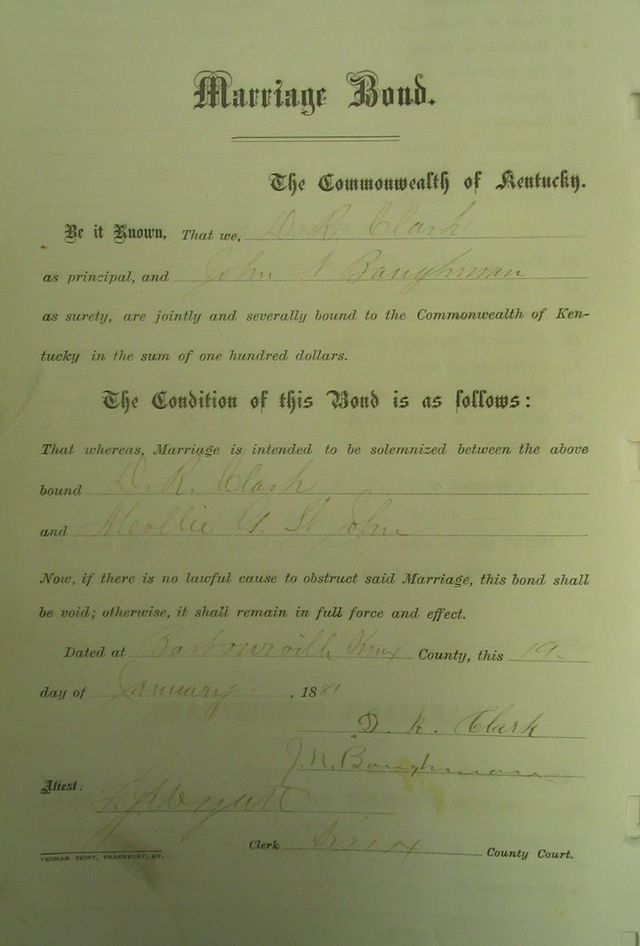 Marriage Bond.
The Commonwealth of Kentucky.
Be it Known, That we, D. R. Clark
as principal, and John N Baughman
as surety, are jointly and severally bound to the Commonwealth of Ken-
tucky in the sum of one hundred dollars.
The Condition of this Bond is as follows:
That whereas, Marriage is intended to be solemnized between the above
bound D. R. Clark
and Mollie A. St John
Now, if there is no lawful cause to obstruct said Marriage, this bond shall
be void; otherwise, it shall remain in full force and effect.
Dated at Barbourville Knox County, this 19
day of January, 1881
D. R. Clark
J. N. Baughman
Attest:
Clerk Knox County Court.
YEOMAN PRINT, FRANKFORT, KY.